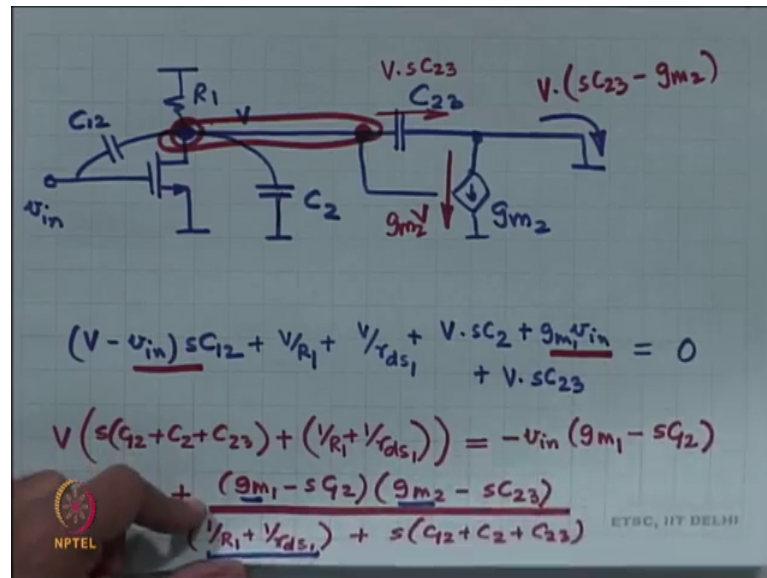 V.sC23
V.(sC23 - gm2)
R1
C12
V
C23
vin
C2
gm2V
gm2
(V - vin) sC12 + V/R1 + V/rds1 + V.sC2 + gm1vin = 0
+ V.sC23
V(s(C12+C2+C23) + (1/R1+1/rds1)) = -vin (gm1 - sC12)
+ (gm1 - sC12)(gm2 - sC23)
(1/R1+1/rds1) + s(C12+C2+C23)
ETSC, IIT DELHI
NPTEL